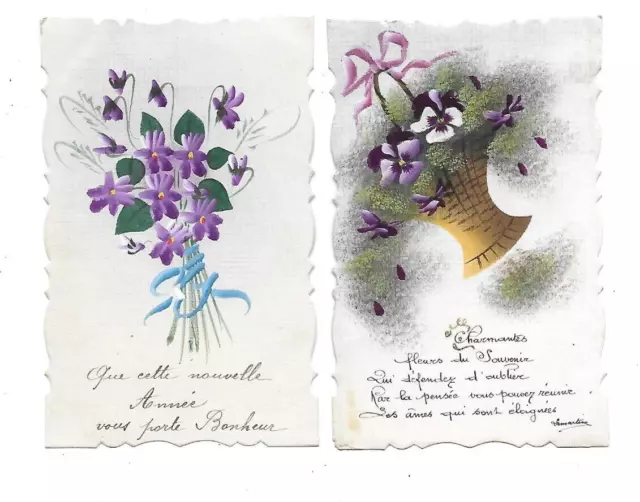 Que cette nouvelle
Année
vous porte Bonheur
Charmantes
fleurs du Souvenir
Qui défendez d'oublier
Par la pensée vous pouvez réunir
Les âmes qui sont éloignées
Lamartine